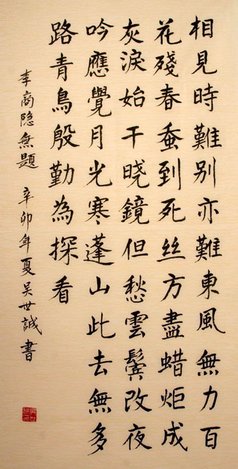 相見時難別亦難東風無力百
花殘春蚕到死丝方盡蜡炬成
灰淚始干晓鏡但愁雲鬓改夜
吟應覺月光寒蓬山此去無多
路青鳥殷勤為探看
李商隐無題 辛卯年夏吴世誠書